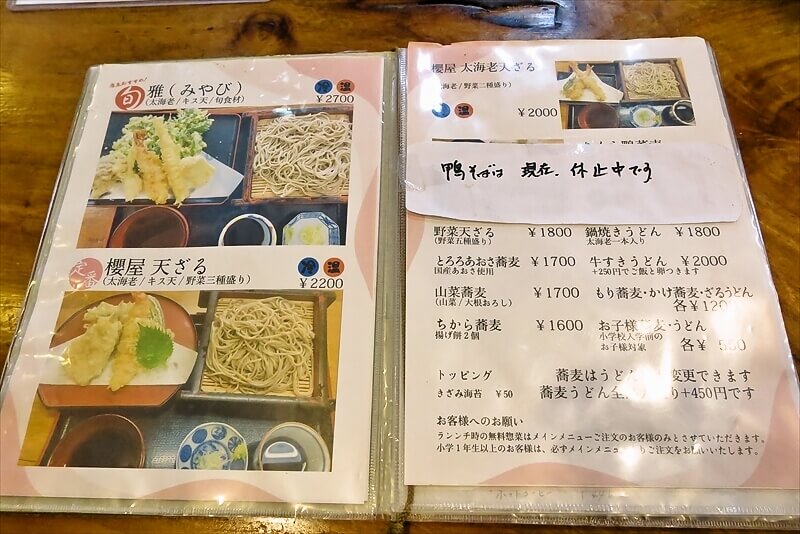 店主おすすめ!
旬 雅(みやび)
(太海老/キス天/旬食材)
冷 温
¥2700
定番 櫻屋 天ざる
(太海老/キス天/野菜三種盛り)
冷 温
¥2200
櫻屋 太海老天ざる
海老/野菜二種盛り)
冷 温
¥2000
鴨そばは 現在、休止中です
野菜天ざる ¥1800
(野菜五種盛り)
とろろあおさ蕎麦 ¥1700
国産あおさ使用
山菜蕎麦 ¥1700
(山菜/大根おろし)
ちから蕎麦 ¥1600
揚げ餅2個
鍋焼きうどん ¥1800
太海老一本入り
牛すきうどん ¥2000
+250円でご飯と卵つきます
もり蕎麦・かけ蕎麦・ざるうどん
各¥120
お子様蕎麦・うどん
小学校入学前の
お子様対象
各¥
トッピング
きざみ海苔 ¥50
蕎麦はうどん 変更できます
蕎麦うどん全 り+450円です
お客様へのお願い
ランチ時の無料惣菜はメインメニューご注文のお客様のみとさせていただきます。
小学1年生以上のお客様は、必ずメインメニュー りご注文をお願いいたします。